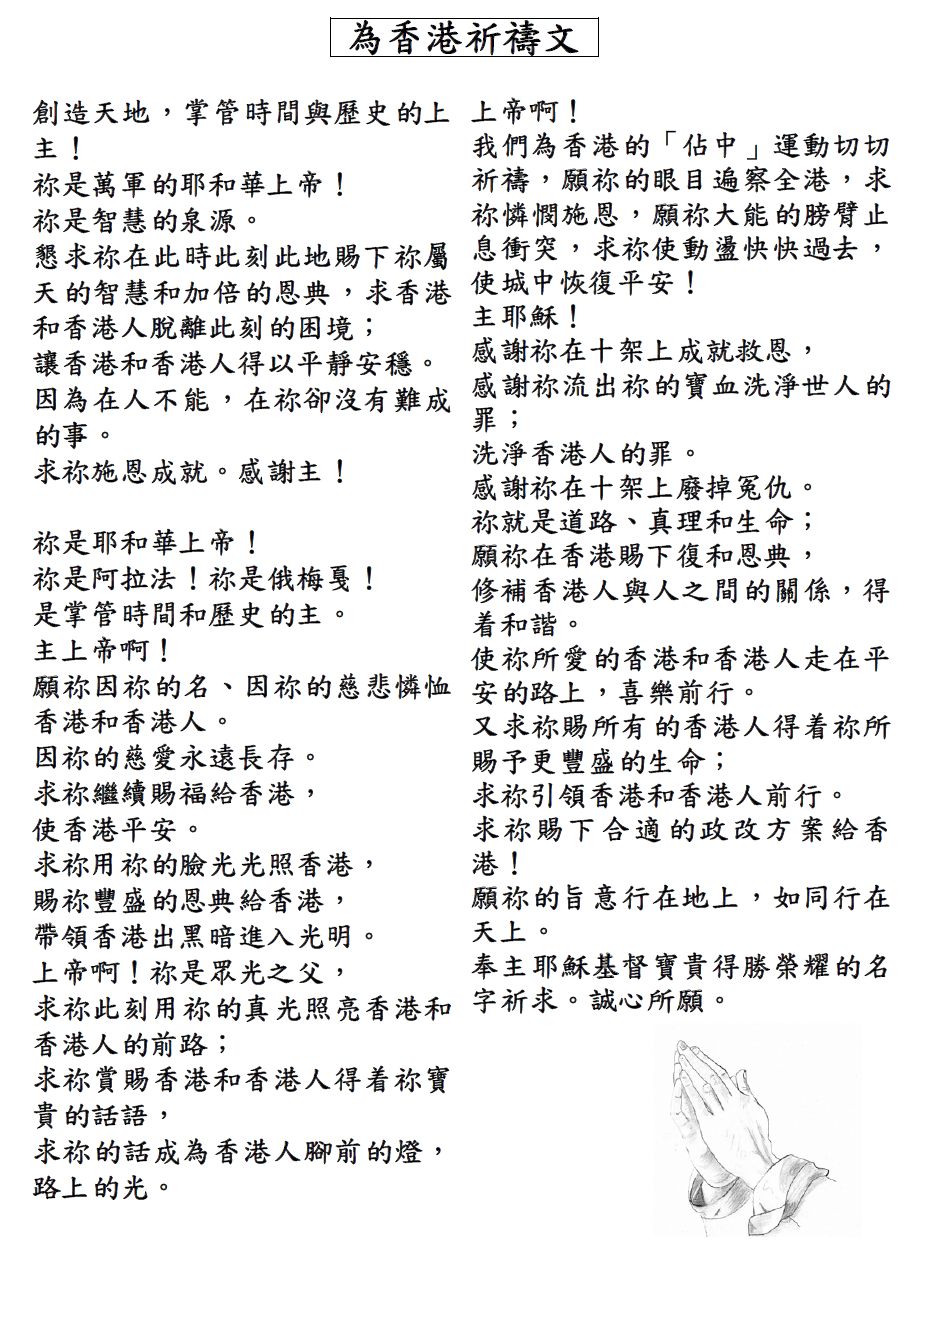 為香港祈禱文
創造天地，掌管時間與歷史的上
主！
祢是萬軍的耶和華上帝！
祢是智慧的泉源。
懇求祢在此時此刻此地賜下祢屬
天的智慧和加倍的恩典，求香港
和香港人脫離此刻的困境；
讓香港和香港人得以平靜安穩。
因為在人不能，在祢卻沒有難成
的事。
求祢施恩成就。感謝主！
祢是耶和華上帝！
祢是阿拉法！祢是俄梅戛！
是掌管時間和歷史的主。
主上帝啊！
願祢因祢的名、因祢的慈悲憐恤
香港和香港人。
因祢的慈愛永遠長存。
求祢繼續賜福給香港，
使香港平安。
求祢用祢的臉光光照香港，
賜祢豐盛的恩典給香港，
帶領香港出黑暗進入光明。
上帝啊！祢是眾光之父，
求祢此刻用祢的真光照亮香港和
香港人的前路；
求祢賞賜香港和香港人得着祢寶
貴的話語，
求祢的話成為香港人腳前的燈，
路上的光。
上帝啊！
我們為香港的「佔中」運動切切
祈禱，願祢的眼目遍察全港，求
祢憐憫施恩，願祢大能的膀臂止
息衝突，求祢使動盪快快過去，
使城中恢復平安！
主耶穌！
感謝祢在十架上成就救恩，
感謝祢流出祢的寶血洗淨世人的
罪；
洗淨香港人的罪。
感謝祢在十架上廢掉冤仇。
祢就是道路、真理和生命；
願祢在香港賜下復和恩典，
修補香港人與人之間的關係，得
着和諧。
使祢所愛的香港和香港人走在平
安的路上，喜樂前行。
又求祢賜所有的香港人得着祢所
賜予更豐盛的生命；
求祢引領香港和香港人前行。
求祢賜下合適的政改方案給香
港！
願祢的旨意行在地上，如同行在
天上。
奉主耶穌基督寶貴得勝榮耀的名
字祈求。誠心所願。